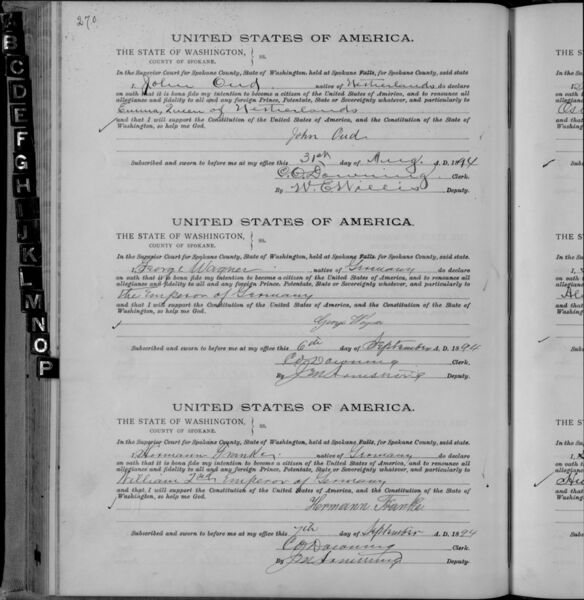 270
B
C
D
E
F
G
H
I
J
K
L
M
N
O
P
UNITED STATES OF AMERICA.
THE STATE OF WASHINGTON,
COUNTY OF SPOKANE.
ss.
In the Superior Court for Spokane County, State of Washington, held at Spokane Falls, for Spokane County, said state
I, John Oud native of Netherlands do declare
on oath that it is bona fide my intention to become a citizen of the United States of America, and to renounce all
allegiance and fidelity to all and any foreign Prince, Potentate, State or Sovereignty whatever, and particularly to
Emma, Queen of Netherlands
and that I will support the Constitution of the United States of America, and the Constitution of the State of
Washington, so help me God.
John Oud
Subscribed and sworn to before me at my office this 31st day of Aug. A. D. 1894
C. E. Downing Clerk.
By W. E. Willis Deputy.
UNITED STATES OF AMERICA.
THE STATE OF WASHINGTON,
COUNTY OF SPOKANE.
ss.
In the Superior Court for Spokane County, State of Washington, held at Spokane Falls, for Spokane County, said state
I, George Wagner native of Germany do declare
on oath that it is bona fide my intention to become a citizen of the United States of America, and to renounce all
allegiance and fidelity to all and any foreign Prince, Potentate, State or Sovereignty whatever, and particularly to
The Emperor of Germany
and that I will support the Constitution of the United States of America, and the Constitution of the State of
Washington, so help me God.
Subscribed and sworn to before me at my office this 6th day of September A. D. 1894
Downing Clerk.
By Deputy.
UNITED STATES OF AMERICA.
THE STATE OF WASHINGTON,
COUNTY OF SPOKANE.
ss.
In the Superior Court for Spokane County, State of Washington, held at Spokane Falls, for Spokane County, said state
I, Hermann native of Germany do declare
on oath that it is bona fide my intention to become a citizen of the United States of America, and to renounce all
allegiance and fidelity to all and any foreign Prince, Potentate, State or Sovereignty whatever, and particularly to
William 2nd Emperor of Germany
and that I will support the Constitution of the United States of America, and the Constitution of the State of
Washington, so help me God.
Hermann Franke
Subscribed and sworn to before me at my office this 7th day of September A. D. 1894
Downing Clerk.
By Deputy.